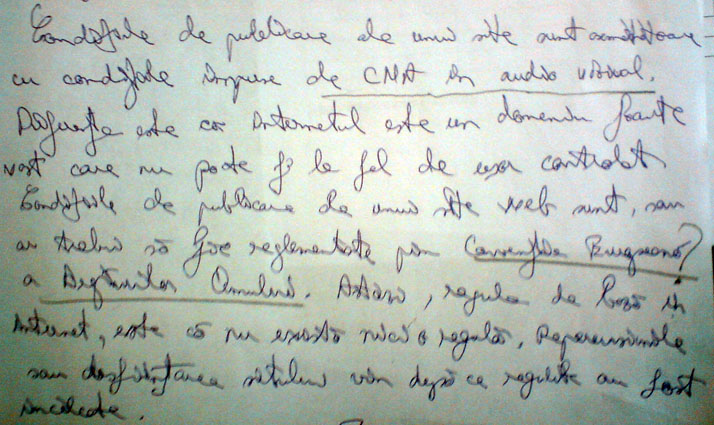 Condițiile de publicare ale unui site sunt asemănătoare
cu condițiile impuse de CNA în audio vizual.
Diferența este că internetul este un domeniu foarte
vast care nu poate fi la fel de ușor controlat
Condițiile de publicare de unui site web sunt, sau
ar trebui să fie reglementate prin Convenția Europeană?
a Drepturilor Omului. Astăzi, regula de bază în
internet, este că nu există nici o regulă. Repercusiunile
sau desființarea sitului vin după ce regulile au fost
încălcate.